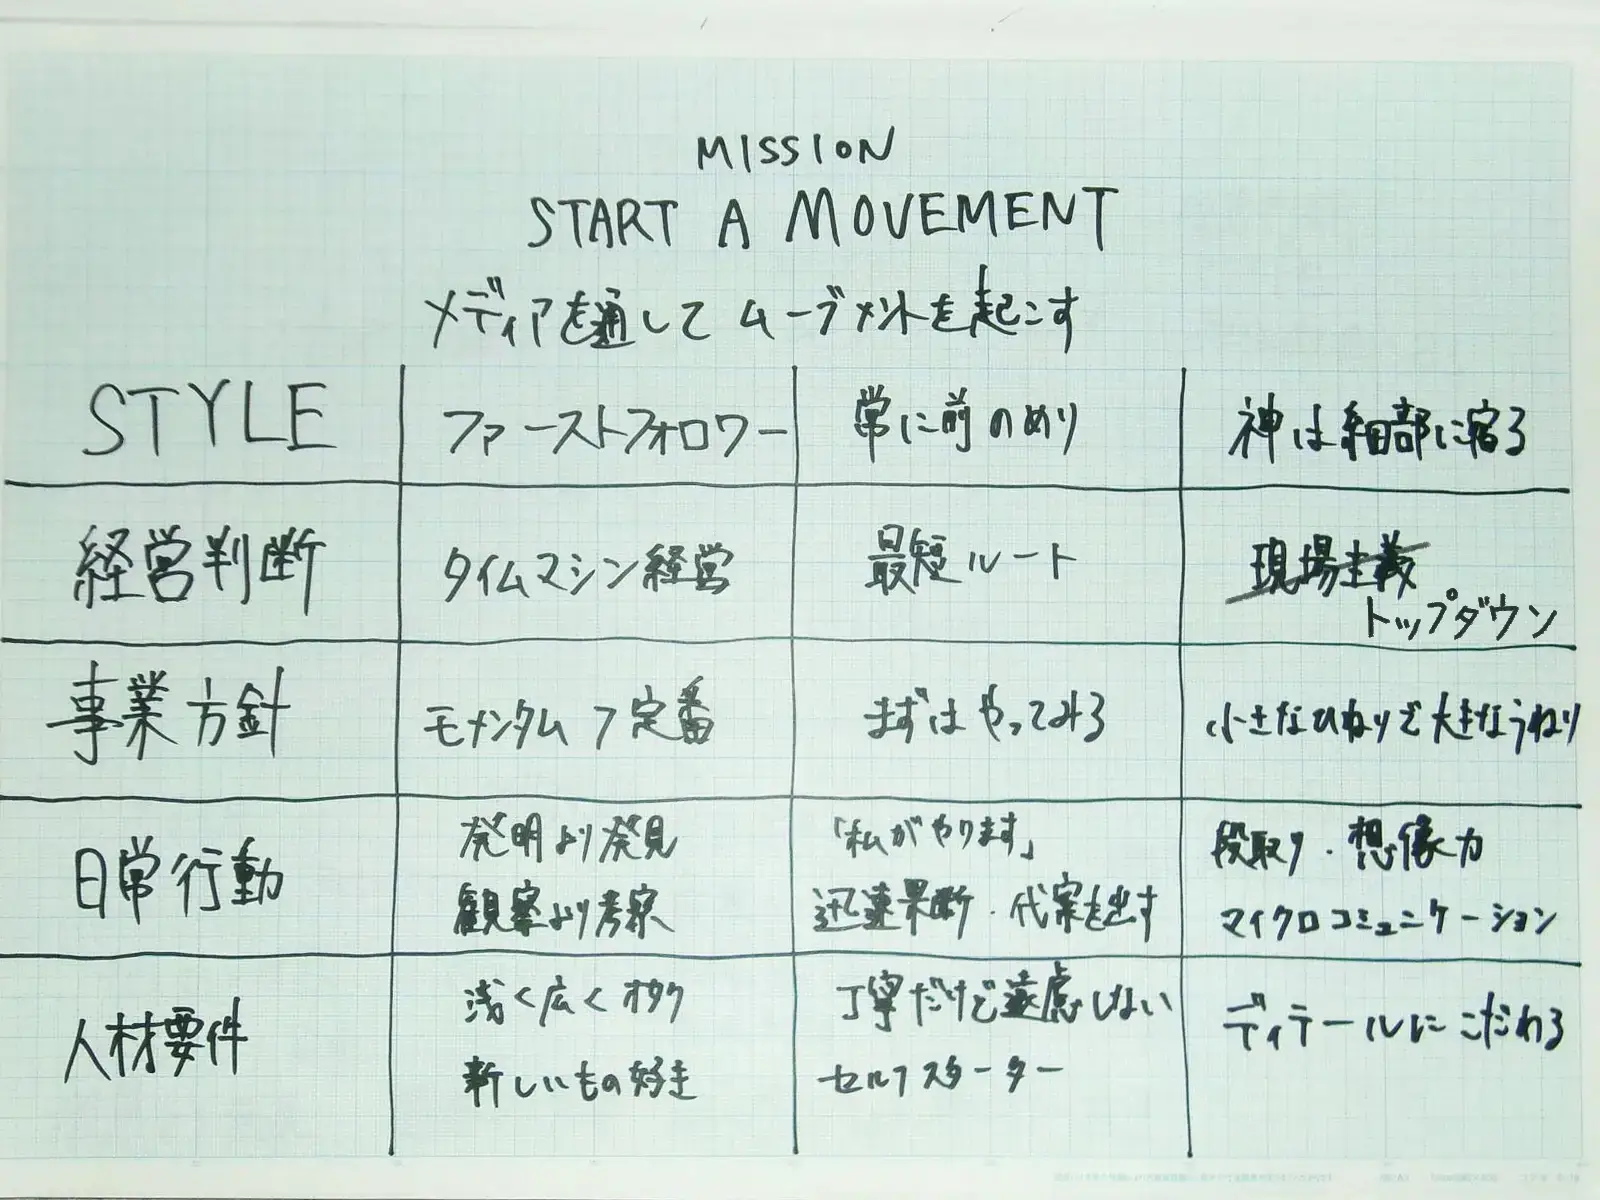 MISSION
START A MOVEMENT
メディアを通してムーブメントを起こす
STYLE
ファーストフォロワー
常に前のめり
神は細部に宿る
経営判断
タイムマシン経営
最短ルート
現場主義
トップダウン
事業方針
モメンタム 7 定番
まずはやってみる
小さなひねりで大きなうねり
日常行動
発明より発見
観察より考察
「私がやります」
迅速果断・代案を出す
段取り・想像力
マイクロコミュニケーション
人材要件
浅く広くオタク
新しいもの好き
丁寧だけど遠慮しない
セルフスターター
ディテールにこだわる